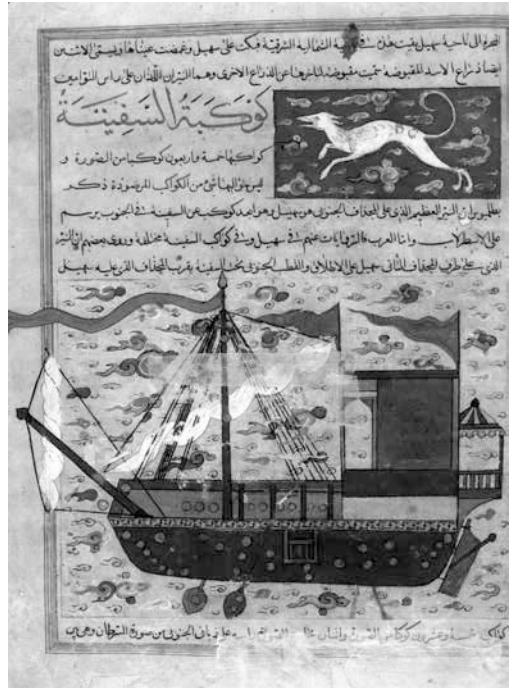 الى ناحية سهيل وبقيت هذه في ناحية الشمالية الشرقية فبكت على سهيل وغمضت عيناها ويسمى الاثنين
ايضا ذراع الاسد المقبوضة سميت مقبوضة لتاخرها عن الذراع الاخرى وهما النيران اللذان على راس التوامين
كوكبة السفينة
كواكبها خمسة واربعون كوكبا من الصورة و
ليس حواليها شئ من الكواكب المرصودة ذكر
بطلميوس ان النير العظيم الذى على المجذاف الجنوبى هو سهيل وهو ابعد كوكب عن السفينة في الجنوب يرسم
على الاسطرلاب واما العرب فالروايات عنهم في سهيل وفي كواكب السفينة مختلفة وروى بعضهم ان النير
الذى على طرف المجذاف الثانى سهيل على الاطلاق والقطب الجنوبى تحت السفينة بقرب المجذاف الذى عليه سهيل
خمسة وعشرون كوكبا الصورة واثنان الجنوبى من صورة السرطان وهى بين